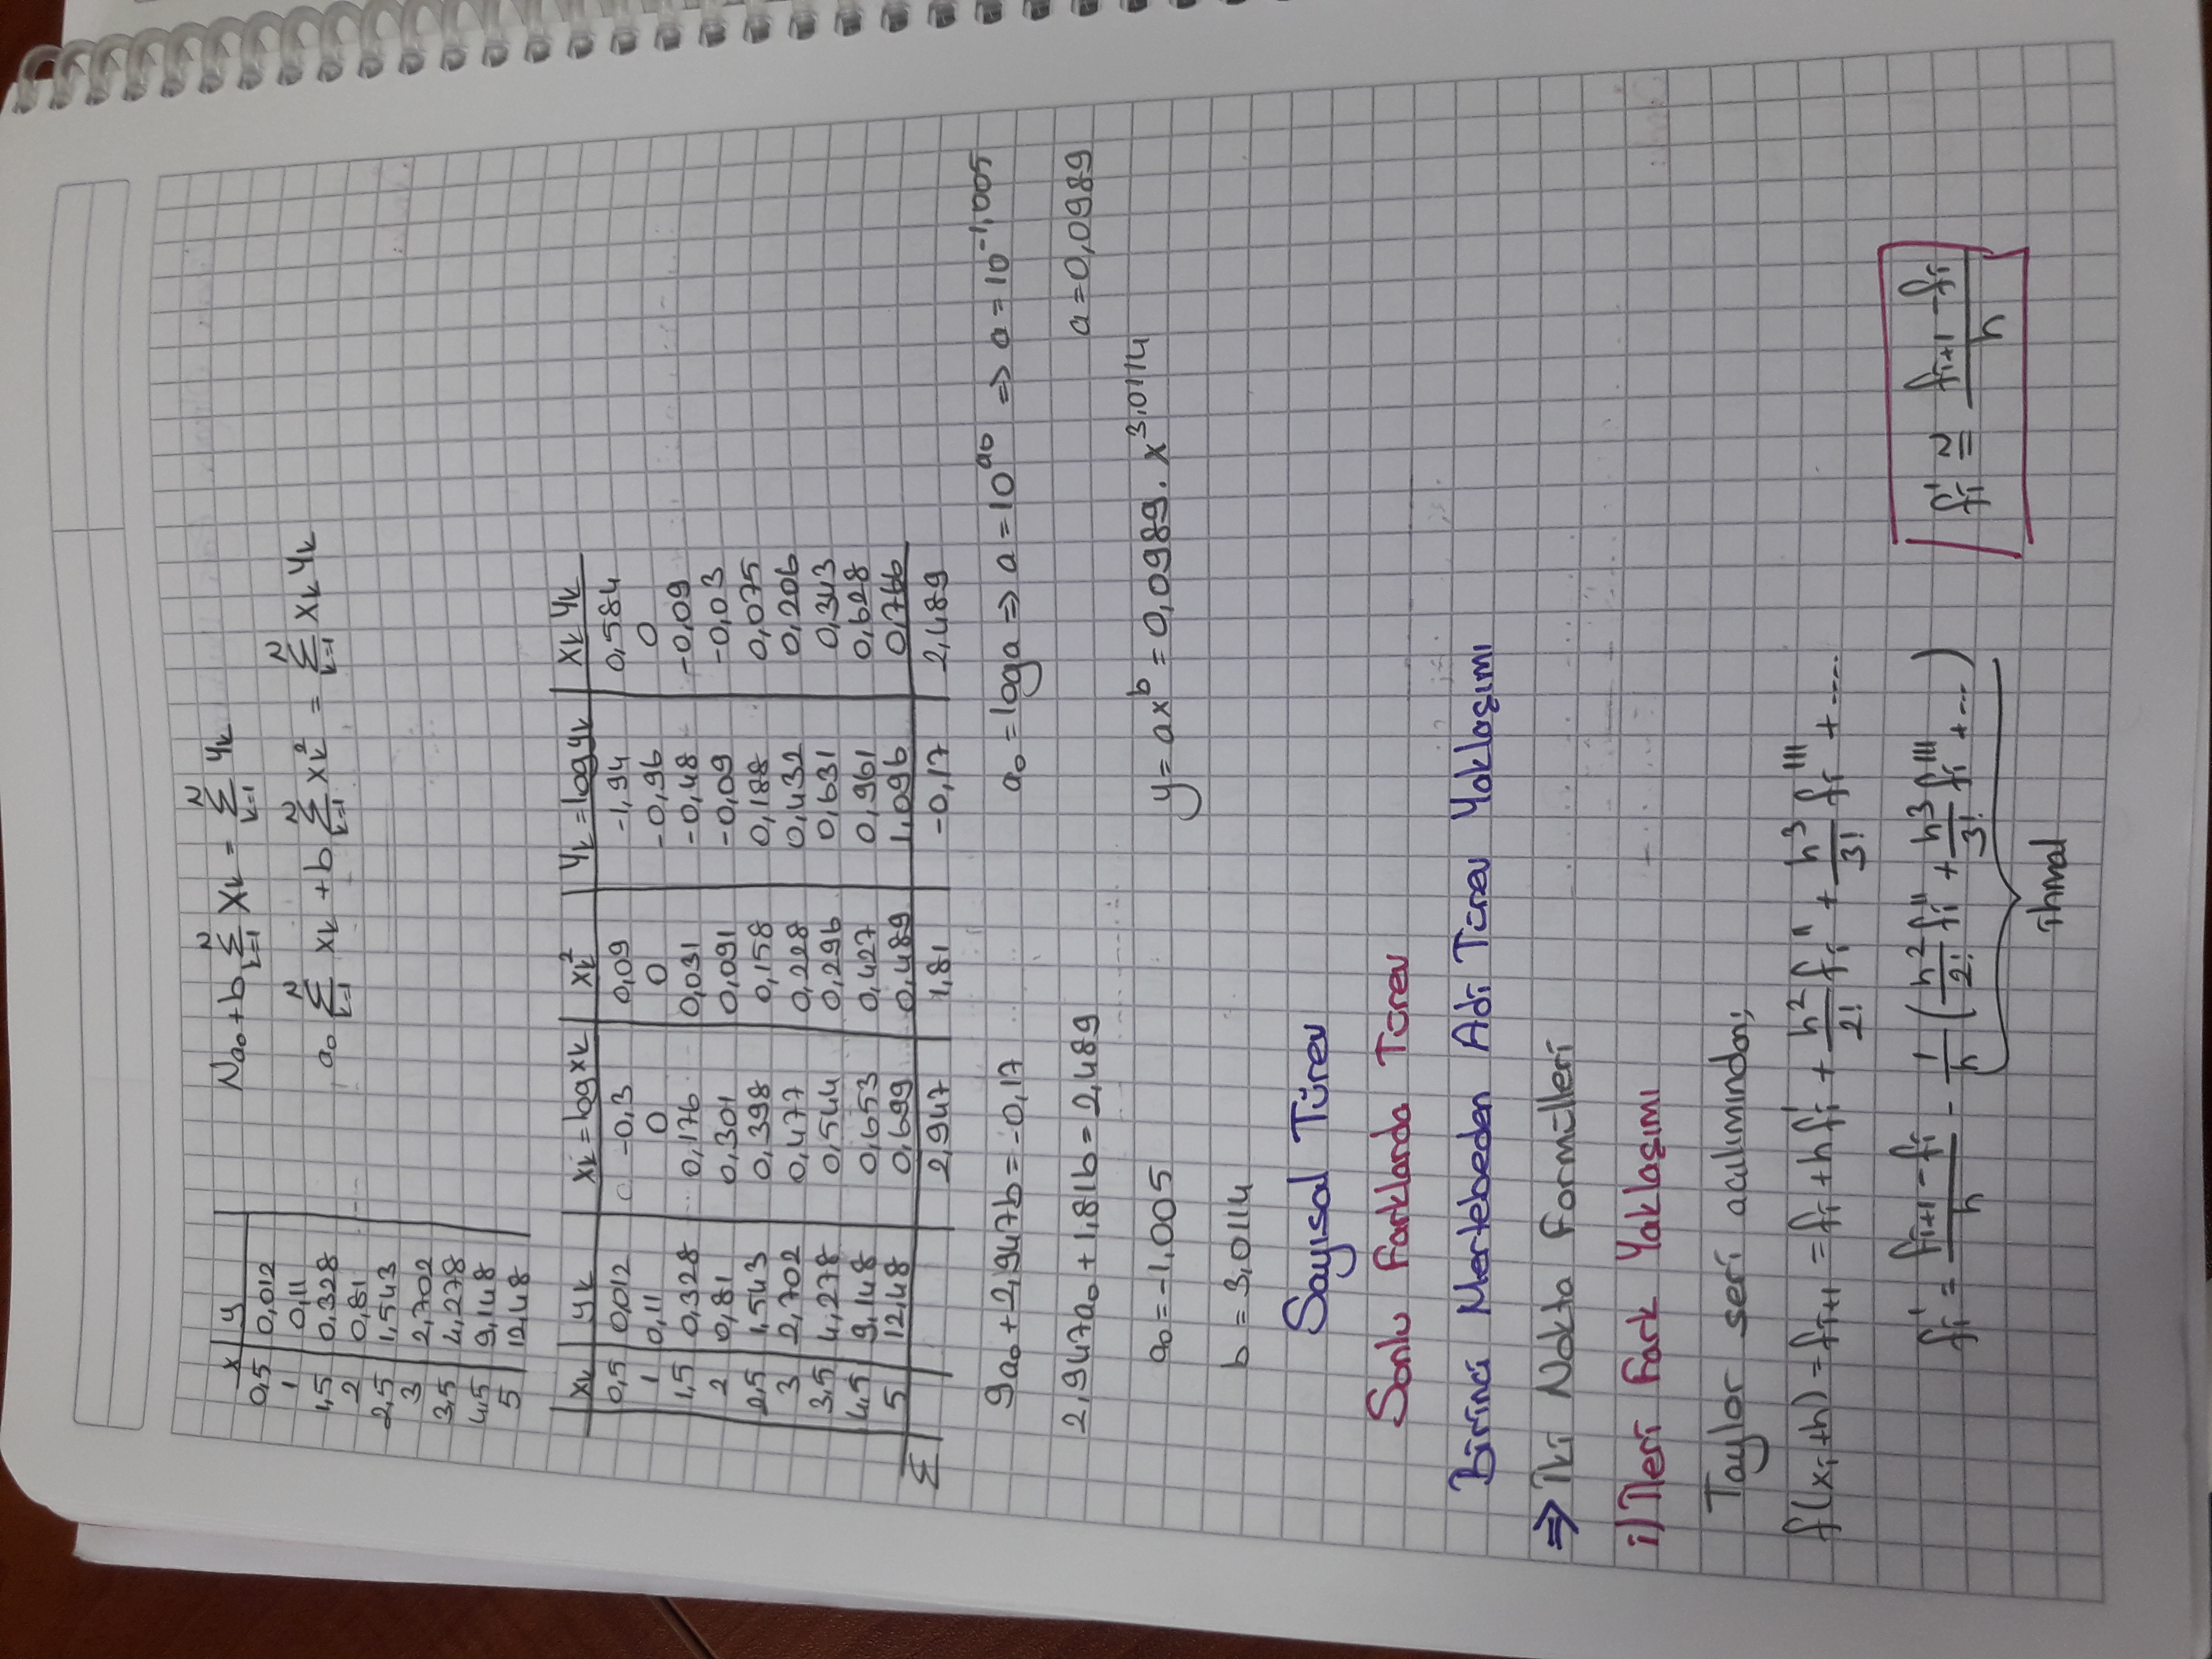 x | y
0,5 | 0,012
1 | 0,11
1,5 | 0,328
2 | 0,81
2,5 | 1,543
3 | 2,702
3,5 | 4,278
4,5 | 9,148
5 | 12,48
Na₀ + b Σ_{k=1}^{N} xk = Σ_{k=1}^{N} yk
a₀ Σ_{k=1}^{N} xk + b Σ_{k=1}^{N} xk² = Σ_{k=1}^{N} xk yk
xk | yk | xk = logxk | xk² | yk = logyk | xk yk
0,5 | 0,012 | -0,3 | 0,09 | -1,94 | 0,584
1 | 0,11 | 0 | 0 | -0,96 | 0
1,5 | 0,328 | 0,176 | 0,031 | -0,48 | -0,09
2 | 0,81 | 0,301 | 0,091 | -0,09 | -0,03
2,5 | 1,543 | 0,398 | 0,158 | 0,188 | 0,075
3 | 2,702 | 0,477 | 0,228 | 0,432 | 0,206
3,5 | 4,278 | 0,544 | 0,296 | 0,631 | 0,343
4,5 | 9,148 | 0,653 | 0,427 | 0,961 | 0,628
5 | 12,48 | 0,699 | 0,489 | 1,096 | 0,766
Σ | | 2,947 | 1,81 | -0,17 | 2,489
9a₀ + 2,947b = -0,17
a₀ = loga ⇒ a = 10^a₀ ⇒ a = 10^-1,005
2,947a₀ + 1,81b = 2,489
a = 0,0989
a₀ = -1,005
y = ax^b = 0,0989 . x^3,0114
b = 3,0114
Sayısal Türev
Sonlu Farklarda Türev
Birinci Mertebeden Adi Türev Yaklaşımı
⇒ İki Nokta Formülleri
i) İleri Fark Yaklaşımı
Taylor seri açılımından;
f(xi+h) = fi+1 = fi + hfi' + h²/2! fi'' + h³/3! fi''' + ....
fi' = (fi+1 - fi)/h - 1/h (h²/2! fi'' + h³/3! fi''' + ...)
fi' ≅ (fi+1 - fi)/h
ihmal